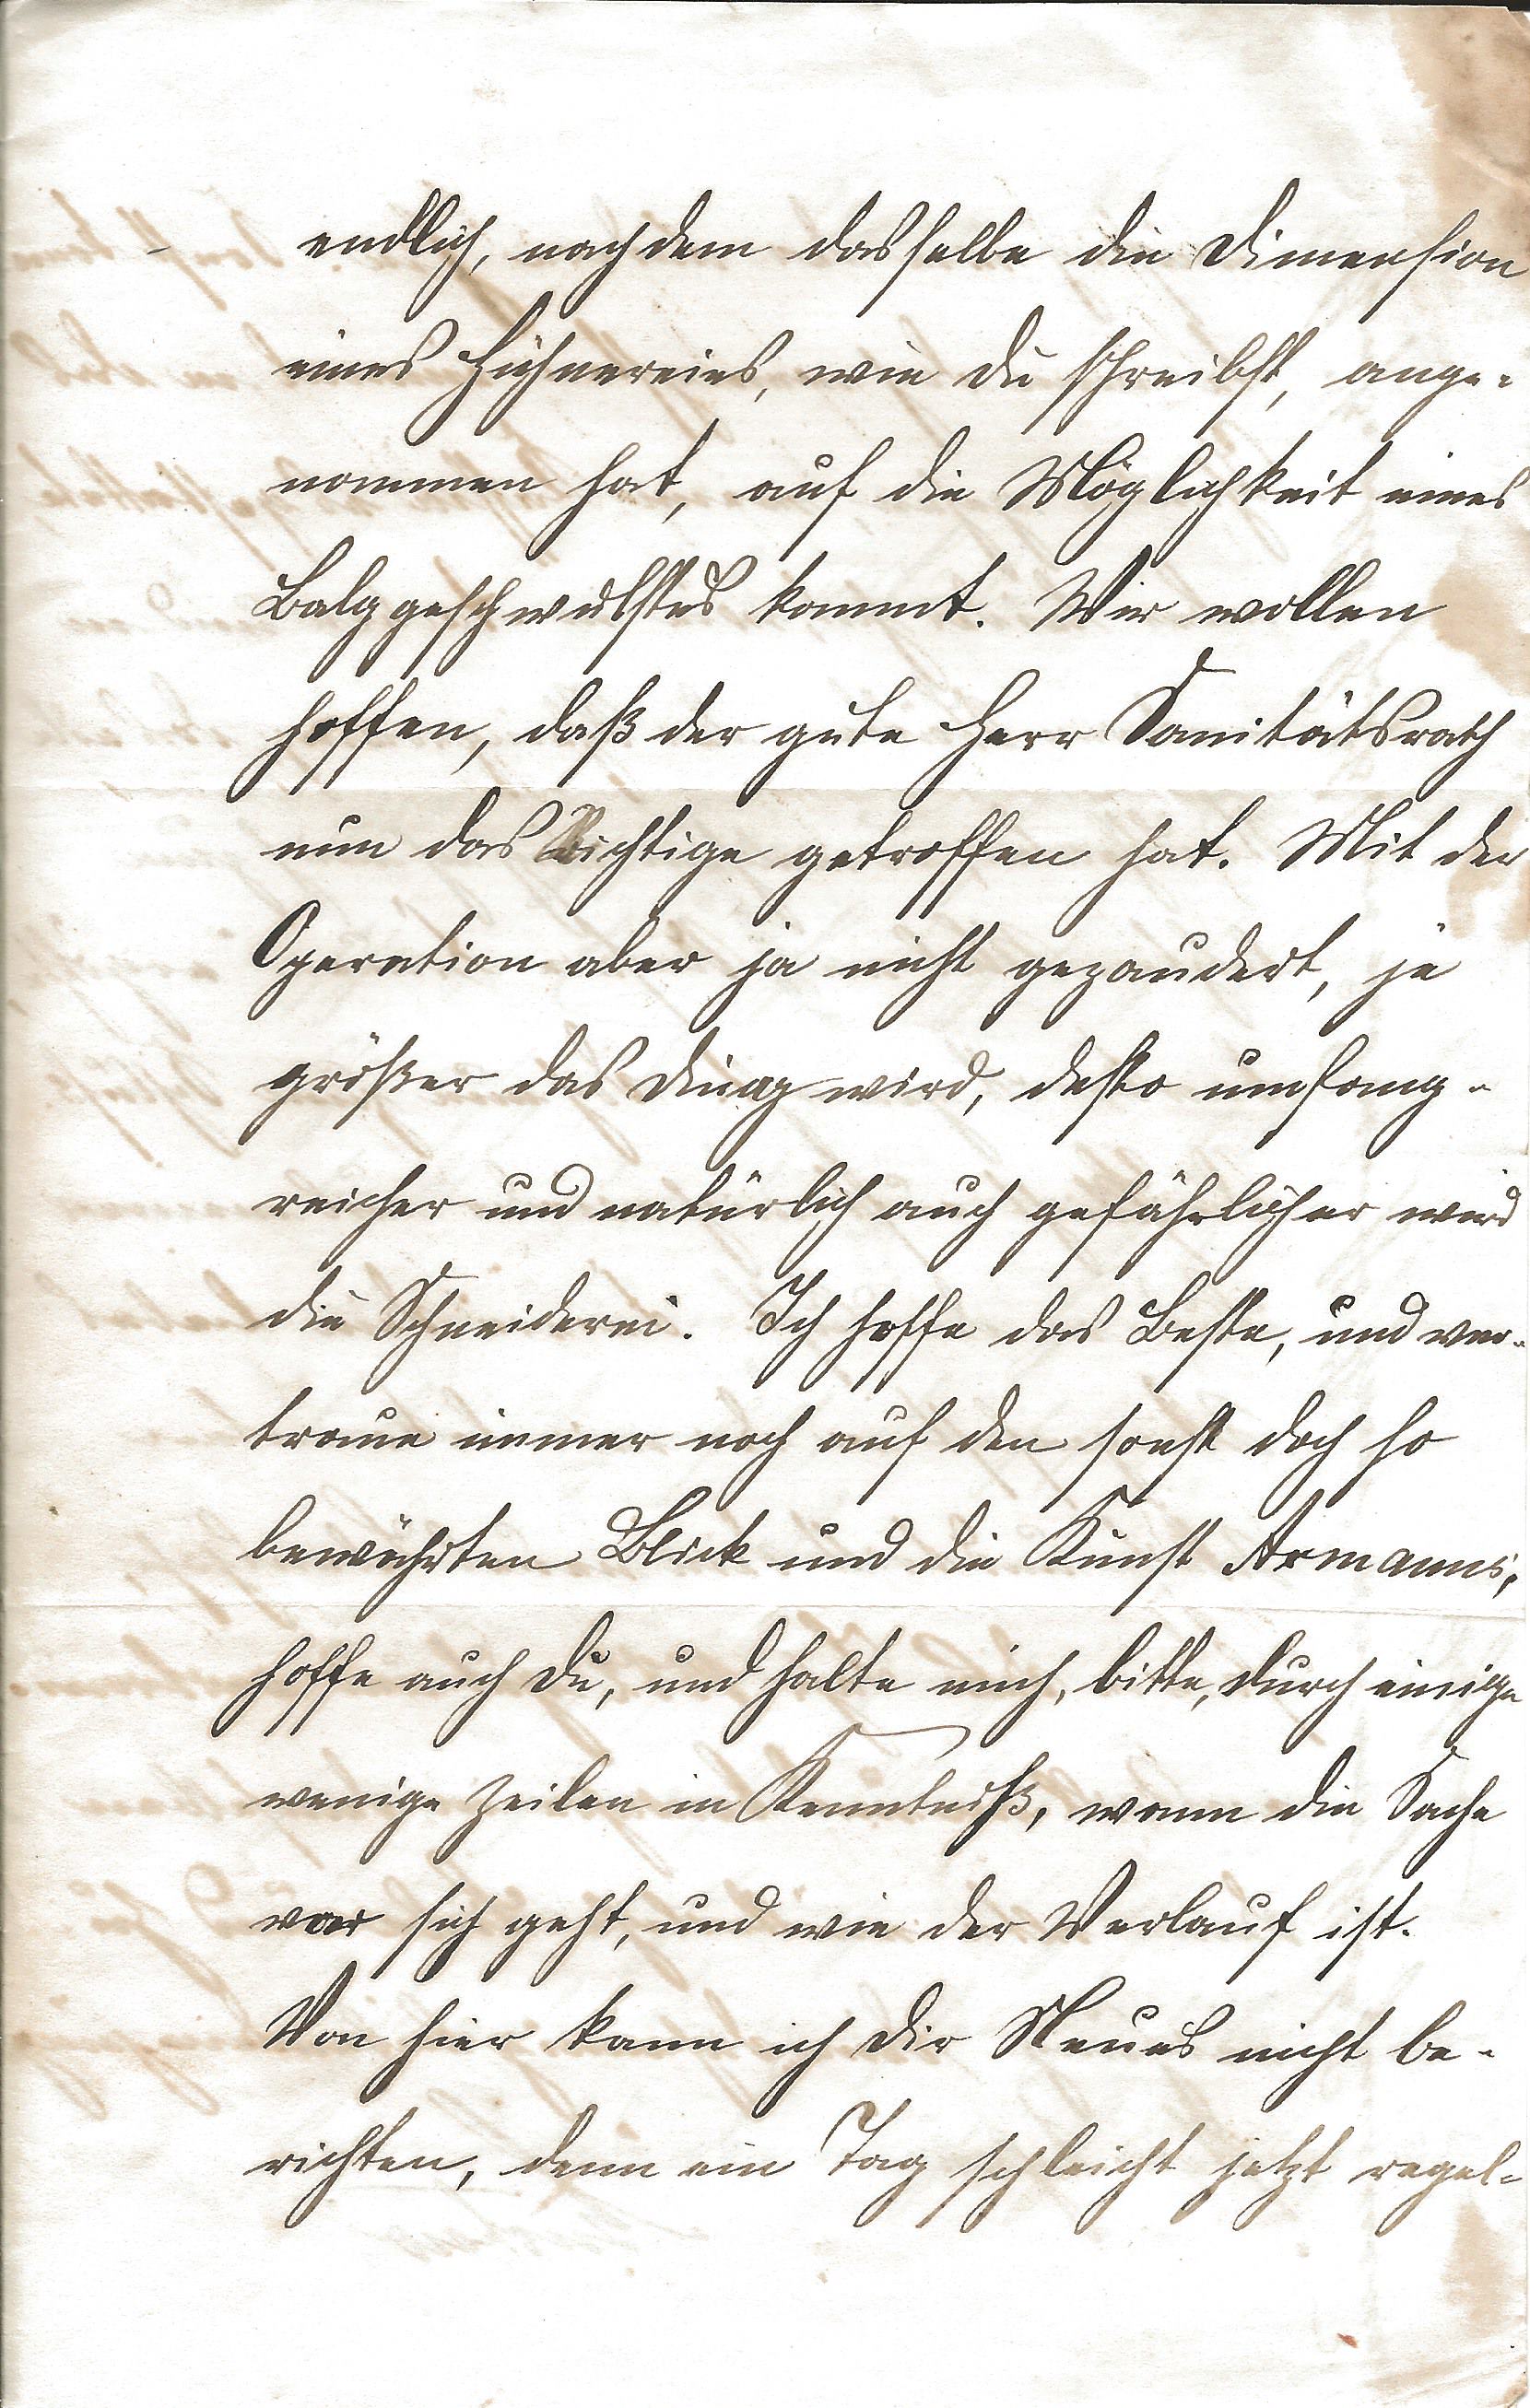 endlich, nachdem dasselbe die Dimension
eines Hühnereies, wie Du schreibst, ange-
nommen hat, auf die Möglichkeit eines
Balggeschwulstes kommt. Wir wollen
hoffen, daß der gute Herr Sanitätsrath
nun das Richtige getroffen hat. Mit der
Operation aber ja nicht gezaudert, je
größer das Ding wird, desto umfang-
reicher und natürlich auch gefährlicher wird
die Schneiderei. Ich hoffe das Beste, und ver-
traue immer noch auf den sonst doch so
bewährten Blick und die Kunst Armanns,
hoffe auch Du, und halte mich, bitte, durch einige
wenige Zeilen in Kenntniß, wann die Sache
vor sich geht, und wie der Verlauf ist.
Von hier kann ich Dir Neues nicht be-
richten, denn ein Tag schleicht jetzt regel-